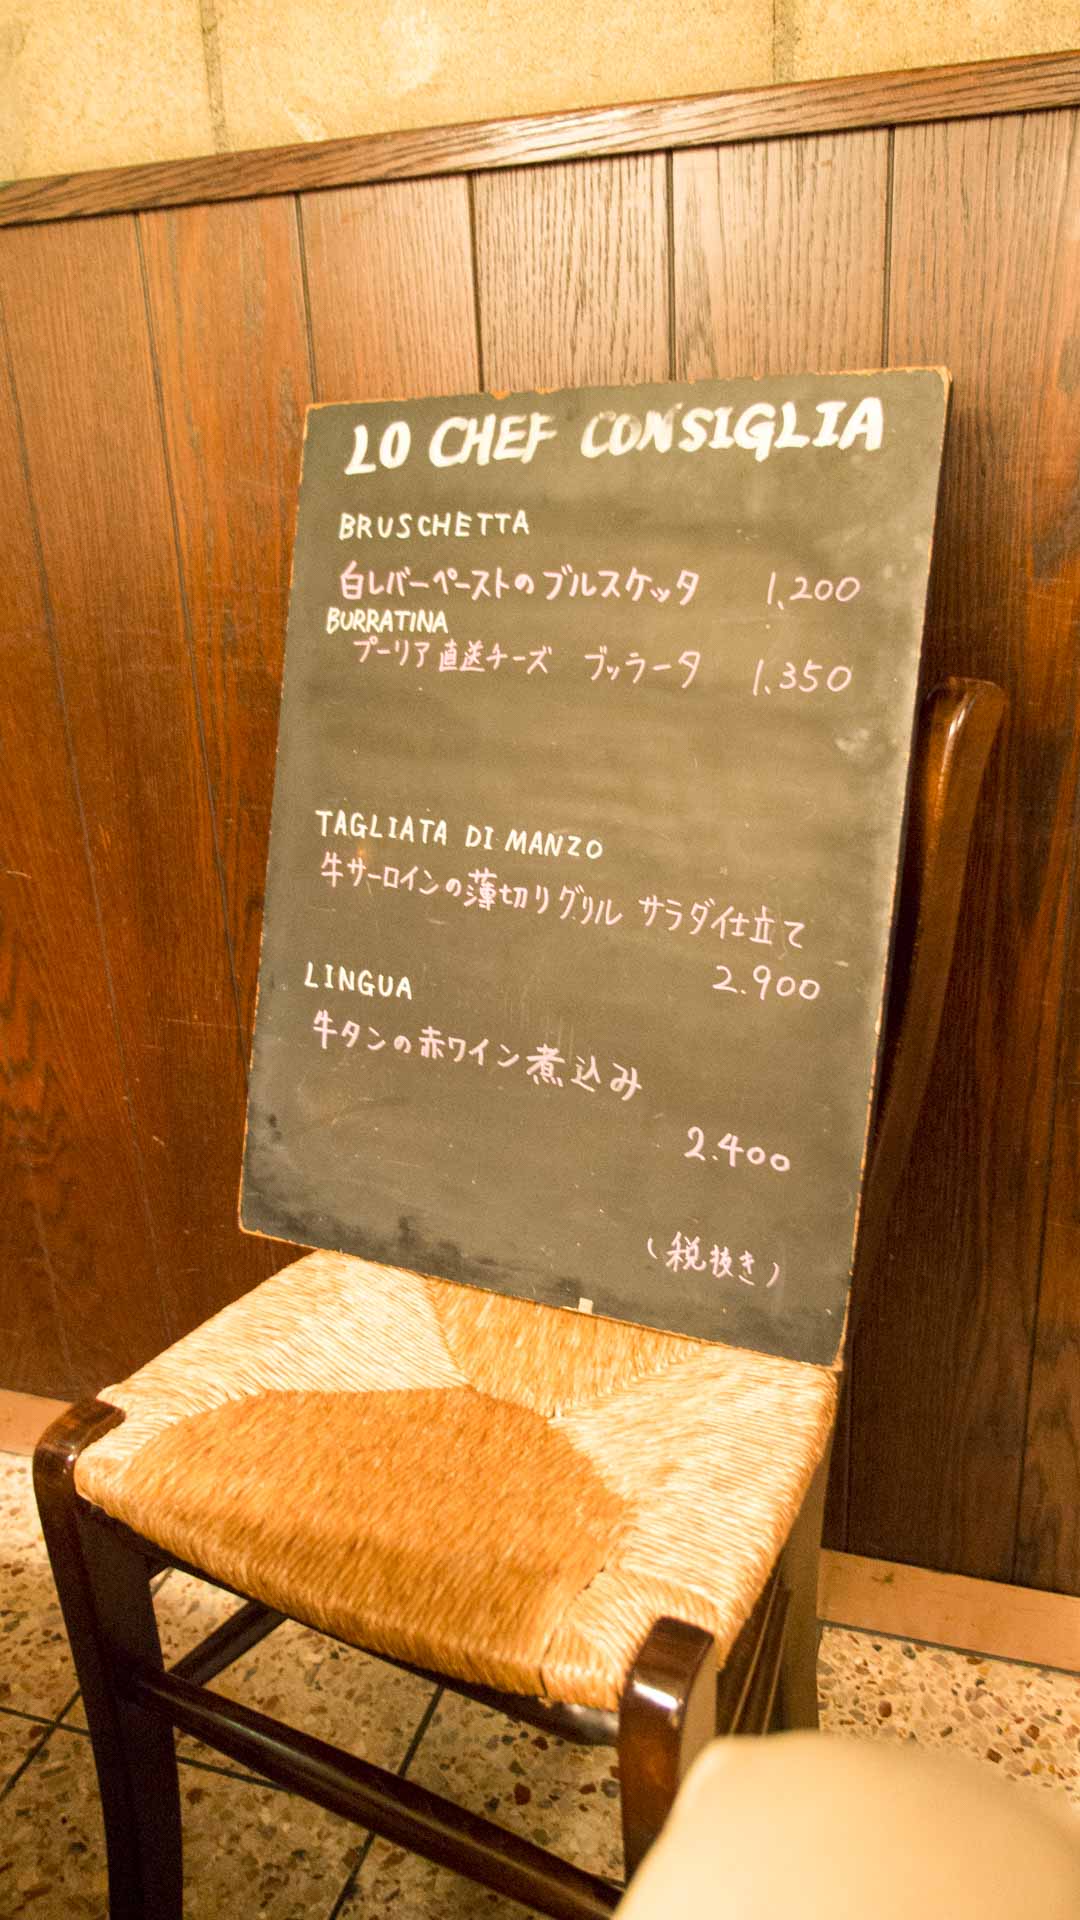 LO CHEF CONSIGLIA
BRUSCHETTA
白レバーペーストのブルスケッタ 1,200
BURRATINA
プーリア直送チーズ ブッラータ 1,350
TAGLIATA DI MANZO
牛サーロインの薄切りグリル サラダ仕立て
2.900
LINGUA
牛タンの赤ワイン煮込み
2.400
(税抜き)